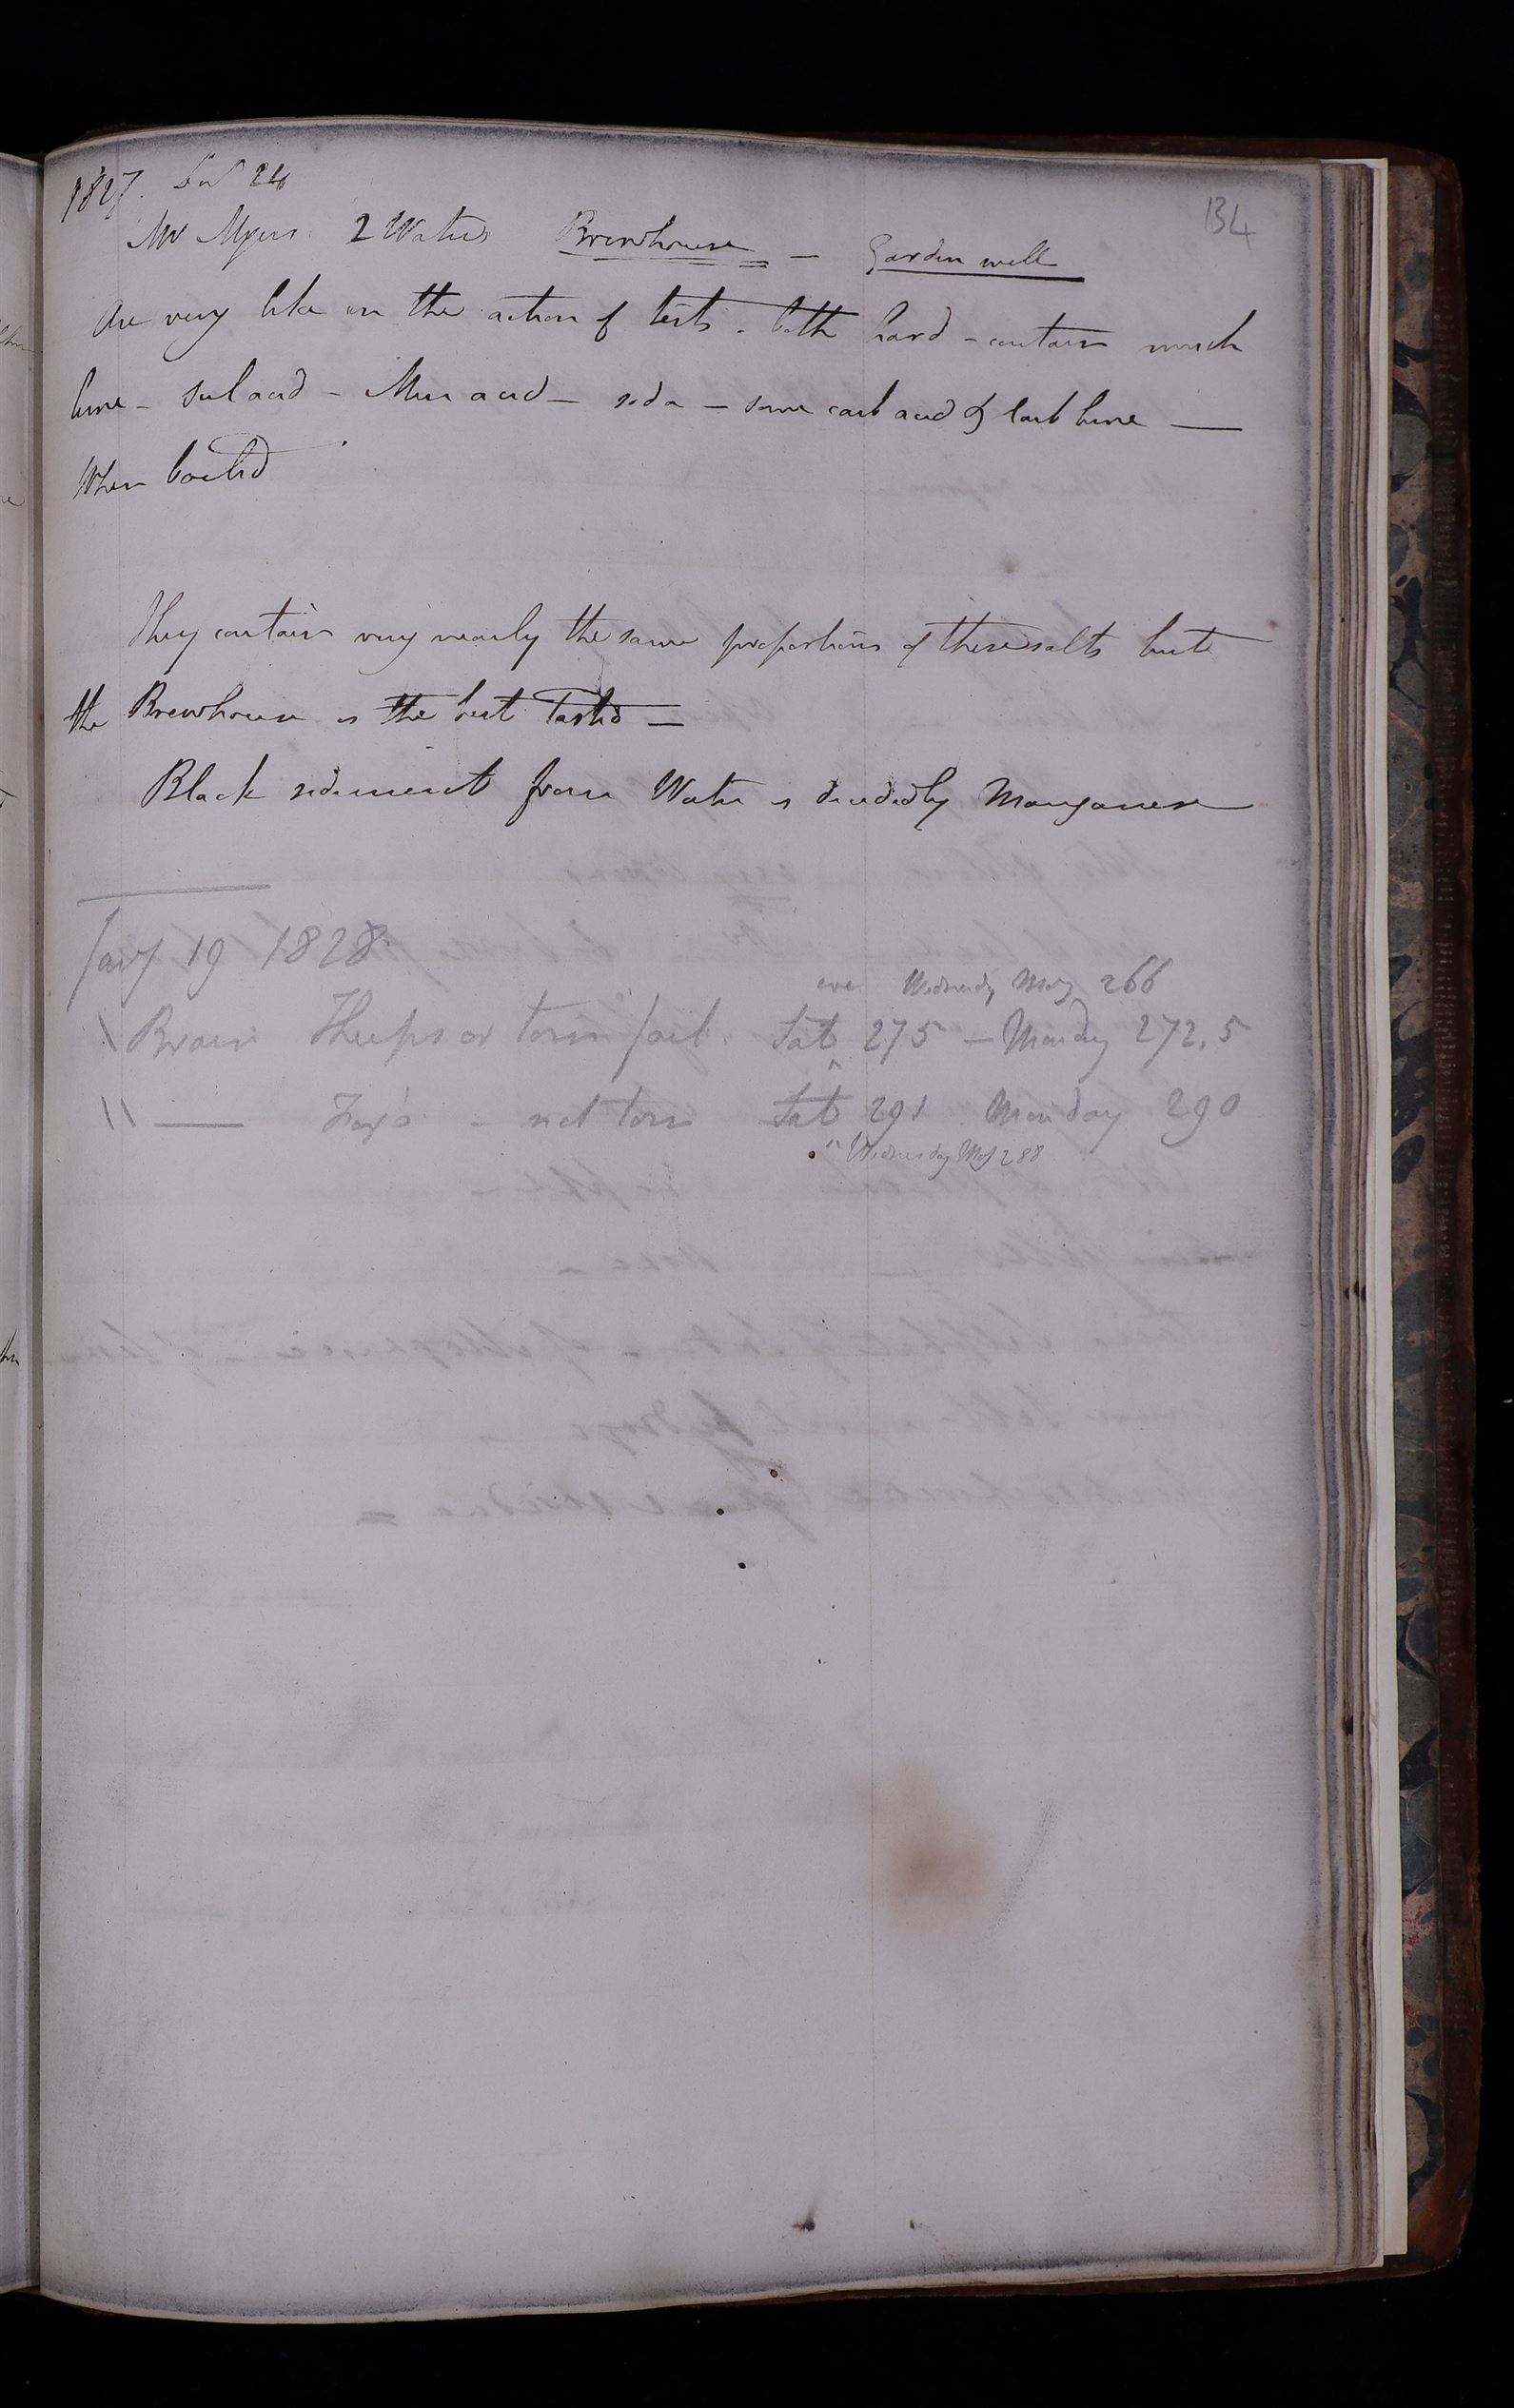 134
1827. Decr 24
Mr Myers 2 Waters Brewhouse — Garden well
Are very like in the action of tests - both hard - contain much
lime - Sul acid - Mur acid - soda - some carb acid & Carb lime —
When boiled
They contain very nearly the same proportions of these salts but
the Brewhouse is the best Tasted —
Black sediment from Water is decidedly Manganese
Jany 19 1828
eve Wednesday Mg 266
\ Brain torn Sat 275 — Monday 272.5
\\ —— - not torn Sat 291 Monday 290
Wednesday Mg 288